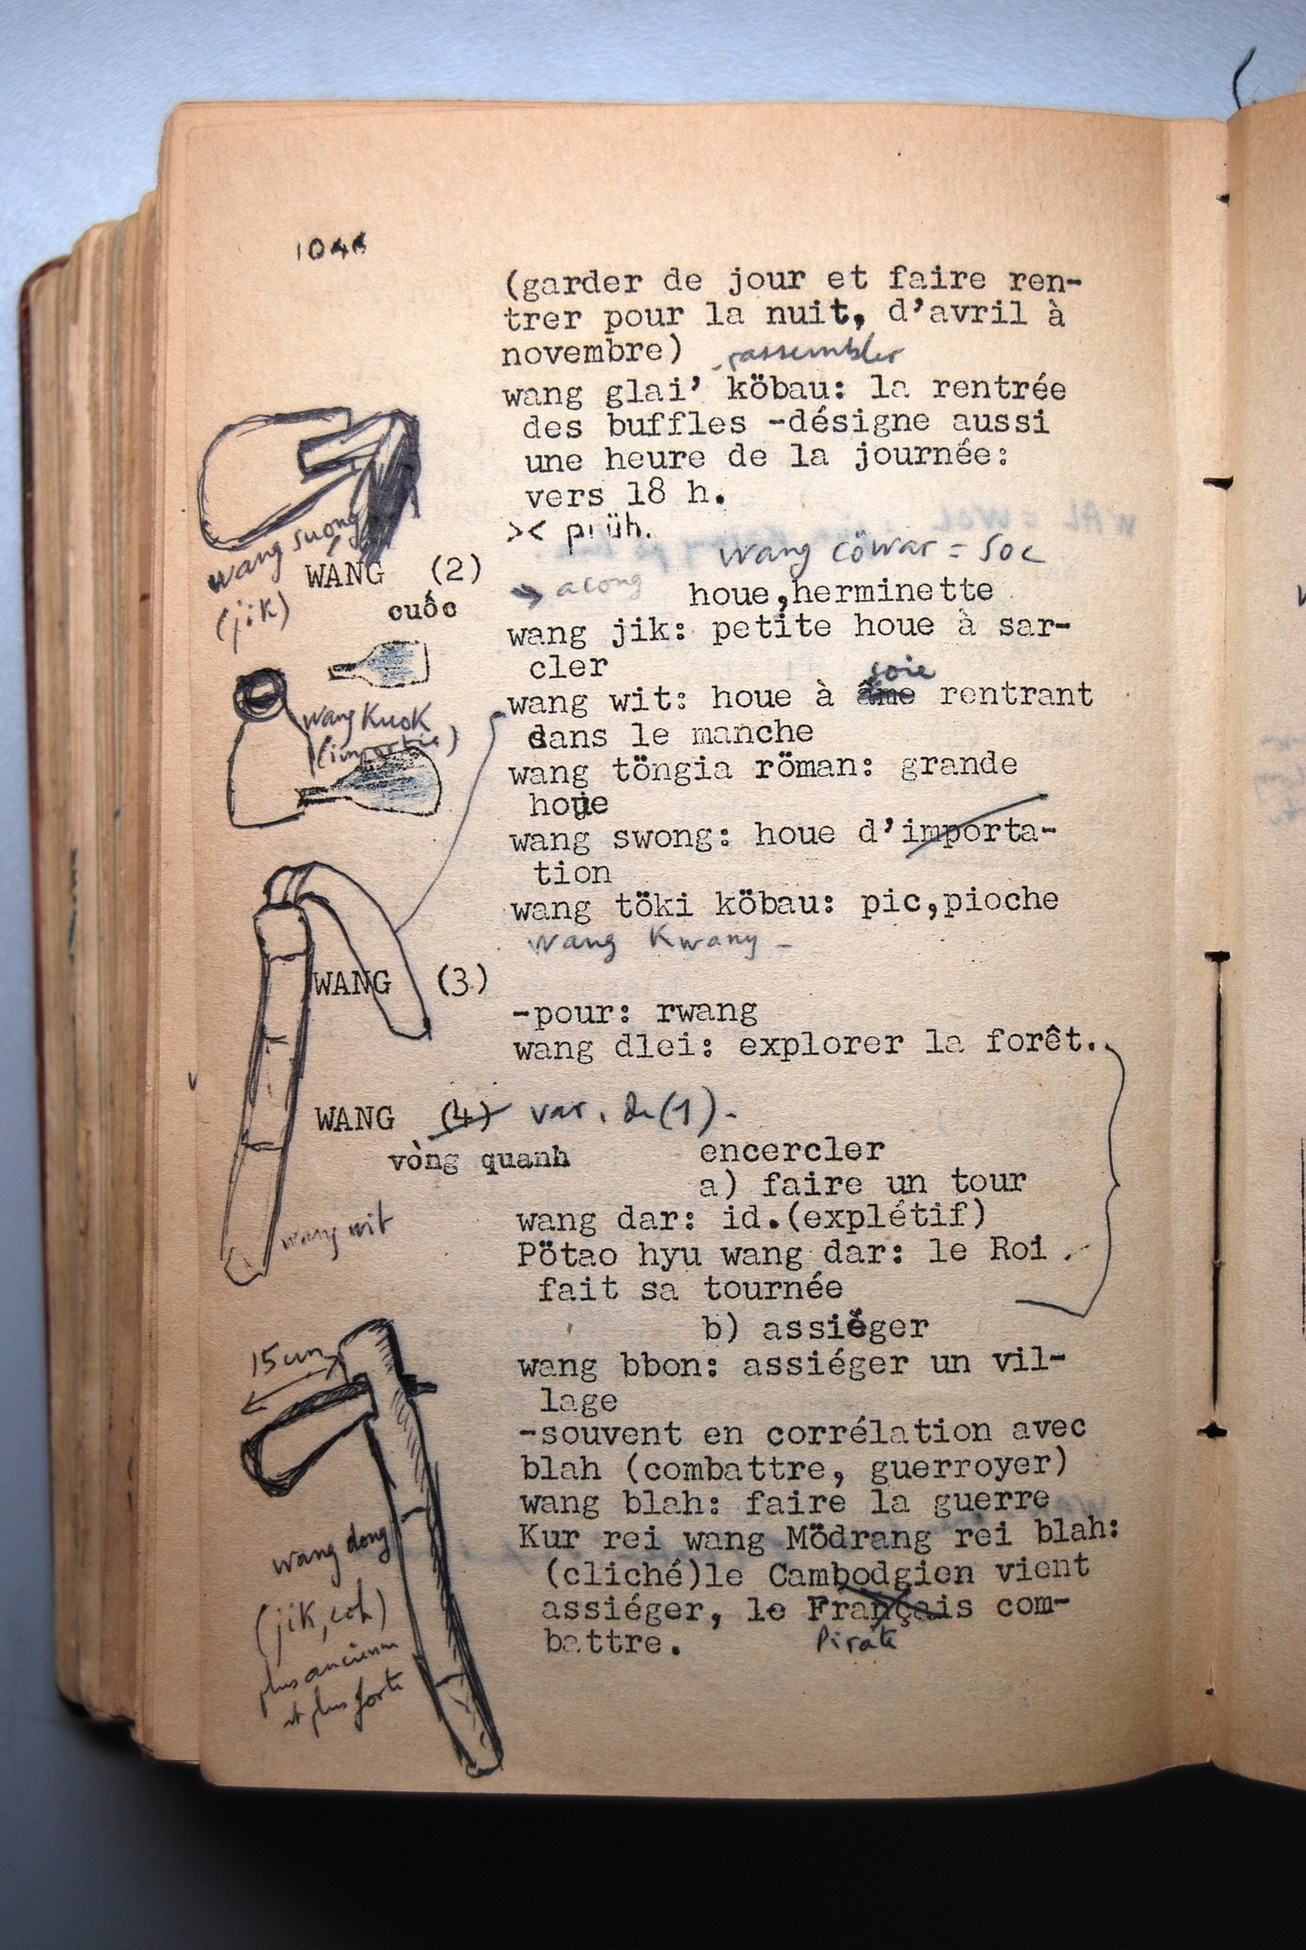 (garder de jour et faire ren-
trer pour la nuit, d'avril à
novembre)
rassembler
wang glai' köbau: la rentrée
des buffles -désigne aussi
une heure de la journée:
vers 18 h.
>< prüh.
wang suong
(jik)
WANG (2)
cuốc
wang cöwar = soc
acong
houe,herminette
wang jik: petite houe à sar-
cler
soie
wang wit: houe à âme rentrant
dans le manche
wang Kuok
wang töngia röman: grande
houe
wang swong: houe d'importa-
tion
wang töki köbau: pic,pioche
wang Kwang -
WANG (3)
-pour: rwang
wang dlei: explorer la forêt.
WANG (4) var. de (1).-
vòng quanh
encercler
a) faire un tour
wang wit
wang dar: id.(explétif)
Pötao hyu wang dar: le Roi
fait sa tournée
b) assiéger
15 cm
wang bbon: assiéger un vil-
lage
-souvent en corrélation avec
blah (combattre, guerroyer)
wang blah: faire la guerre
Kur rei wang Mödrang rei blah:
(cliché)le Cambodgien vient
assiéger, le Français com-
battre.
Pirate
wang dong
(jik, coh)
plus ancienne
et plus forte